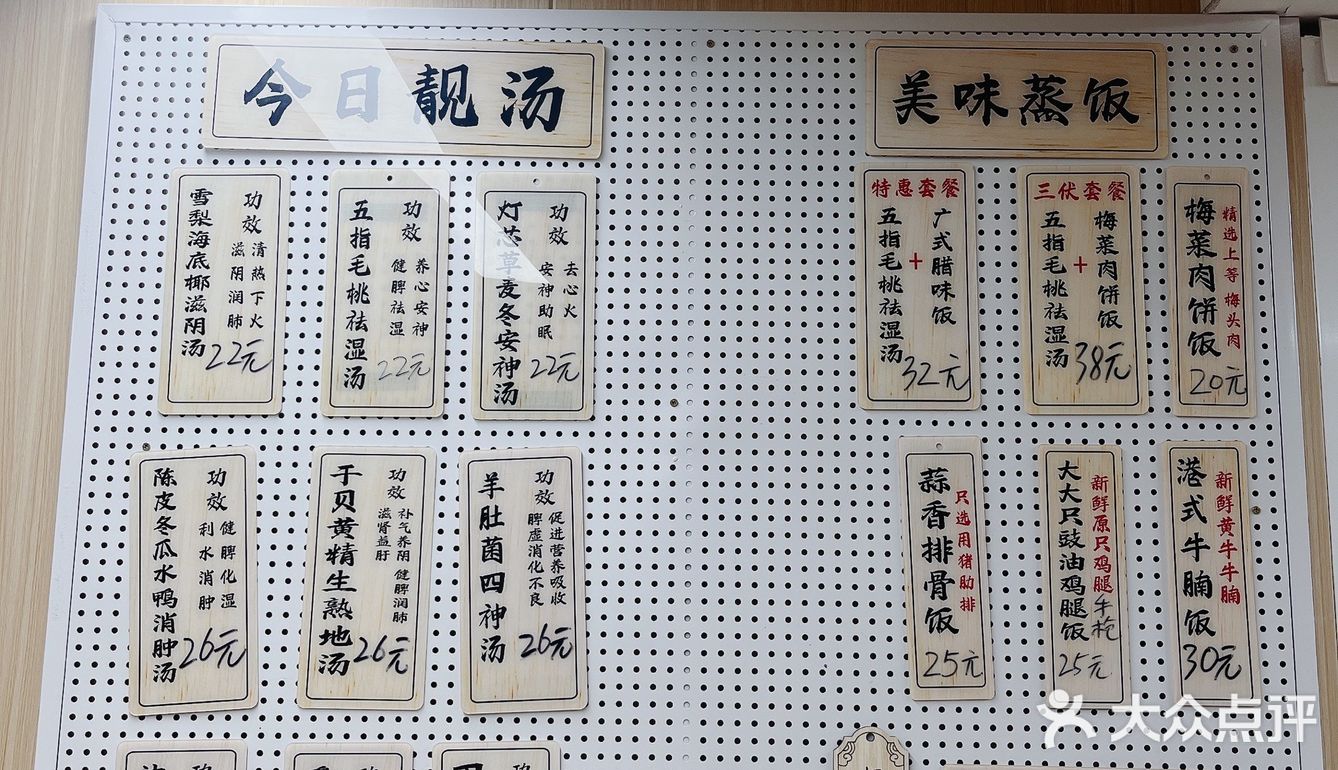 今日靓汤
雪梨海底椰滋阴汤
功效
清热下火
滋阴润肺
22元
五指毛桃祛湿汤
功效
养心安神
健脾祛湿
22元
灯芯草麦冬安神汤
功效
去心火
安神助眠
22元
陈皮冬瓜水鸭消肿汤
功效
健脾化湿
利水消肿
26元
干贝黄精生熟地汤
功效
补气养阴 健脾润肺
滋肾益肝
26元
羊肚菌四神汤
功效
促进营养吸收
脾虚消化不良
26元
功
功
美味蒸饭
特惠套餐
广式腊味饭
+
五指毛桃祛湿汤
32元
三伏套餐
梅菜肉饼饭
+
五指毛桃祛湿汤
38元
梅菜肉饼饭
精选上等梅头肉
20元
蒜香排骨饭
只选用猪肋排
25元
大大只豉油鸡腿饭
新鲜原只鸡腿
25元
港式牛腩饭
新鲜黄牛牛腩
30元
大众点评